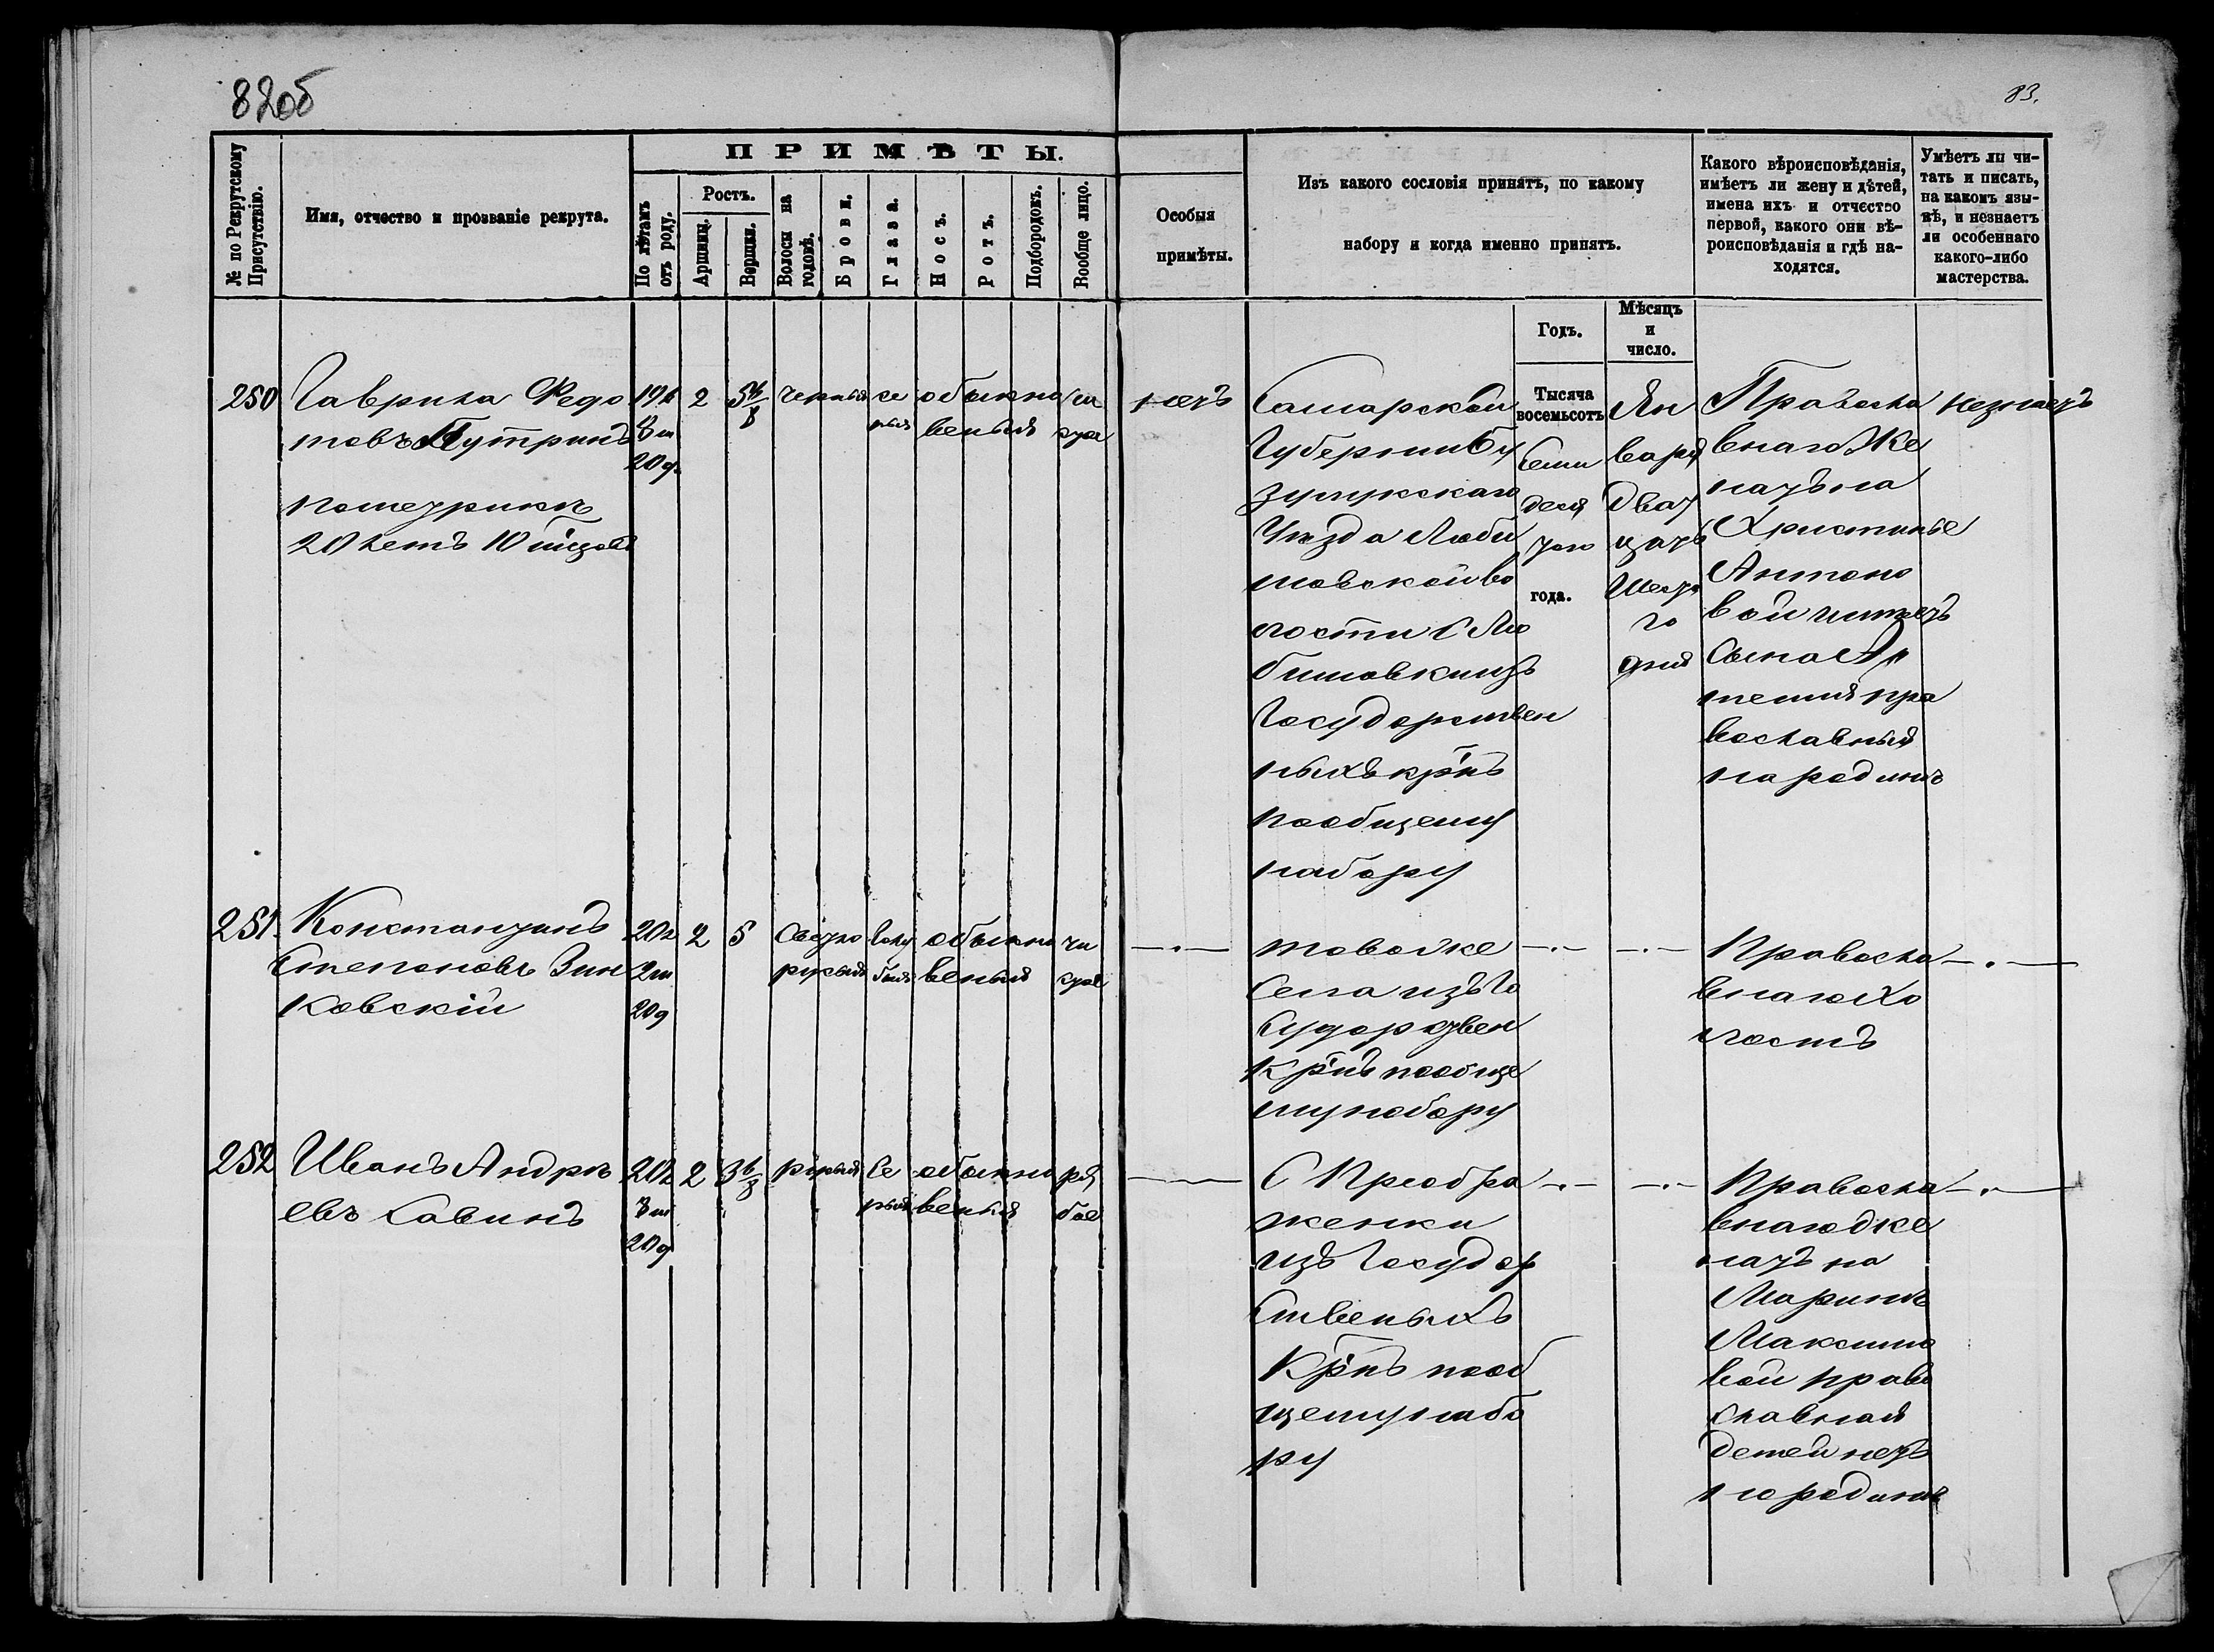 82об
83.
ПРИМѢТЫ.
№ по Рекрутскому Присутствію.
Имя, отчество и прозваніе рекрута.
По лѣтамъ отъ роду.
Ростъ.
Аршинъ.
Вершки.
Волосы на головѣ.
Брови.
Глаза.
Носъ.
Ротъ.
Подбородокъ.
Вообще лицо.
Особыя
примѣты.
Изъ какого сословія принятъ, по какому
набору и когда именно принятъ.
Какого вѣроисповѣданія,
имѣетъ ли жену и дѣтей,
имена ихъ и отчество
первой, какого они вѣ-
роисповѣданія и гдѣ на-
ходятся.
Умѣетъ ли чи-
тать и писать,
на какомъ язы-
кѣ, и незнаетъ
ли особеннаго
какого-либо
мастерства.
Годъ.
Мѣсяцъ
и
число.
250
Гаврила Федо
товъ Путринъ
пометрикѣ
20 летъ
19л
8м
20д
2
5 6/8
черныя
се
рыя
обыкно
веныя
чи
стое
нетъ
Самарской
Губерніи Бу
зулукскаго
Уезда Люби
мовской во
лости С Лю
бимовки изъ
Государствен
ныхъ крнъ
пообщему
набору
Тысяча
восемьсотъ
семи
деся
таго
года.
Ян
варя
Двад
цать
Шеста
го
дня
Правосла
внаго Же
натъ на
Христинье
Антоно
вой имеетъ
Сына Ар
темия пра
вославныя
народинѣ
незнаетъ
251.
Константинъ
Степановъ Зин
ковскій
20л
2м
20д
2
5
Светло
русыя
голу
быя
обыкно
веныя
чи
стое
товоже
Села изъ Го
сударствен
Крнъ пообще
мунабору
Правосла
внаго Хо
лостъ
252
Иванъ Андре
евъ Савинъ
20л
8м
20д
2
3 6/8
русыя
Се
рыя
обыкно
веныя
ря
бое
С Преобра
женки
изъ Государ
Ственыхъ
Крнъ пооб
щему набо
ру
Правосла
внаго Же
натъ на
Маринѣ
Максимо
вой право
славная
детей нетъ
народинѣ